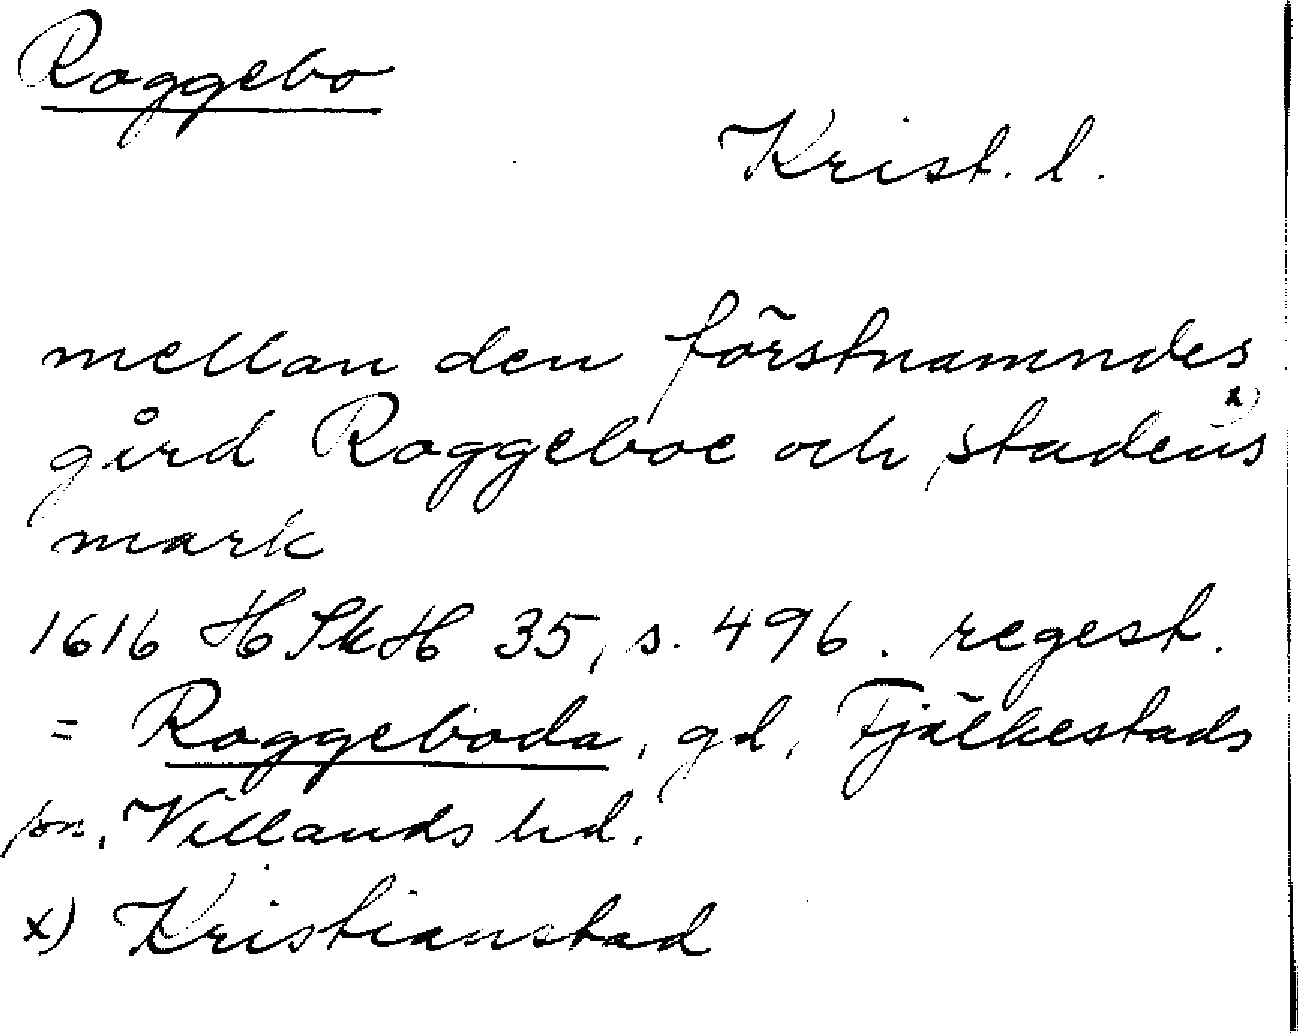 Roggebo
Krist. l.
mellan den förstnamndes
gård Roggeboe och stadens x)
mark
1616 HSkH 35, s. 496. regest.
= Roggeboda, gd, Fjälkestads
sn, Villands hd.
x) Kristianstad